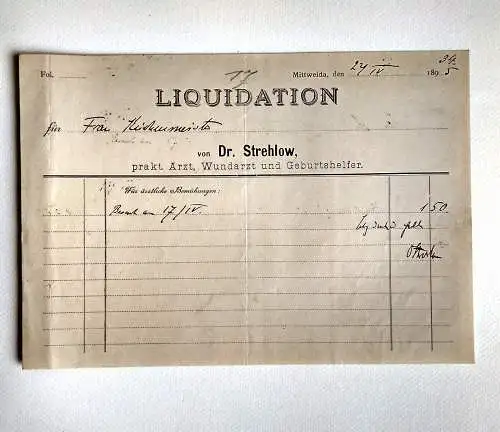 Fol.
17
Mittweida, den 24/IV 1895
34.
LIQUIDATION
für Frau
von Dr. Strehlow,
prakt. Arzt, Wundarzt und Geburtshelfer.
Für ärztliche Bemühungen:
Besuch am 17/IV. 1 50